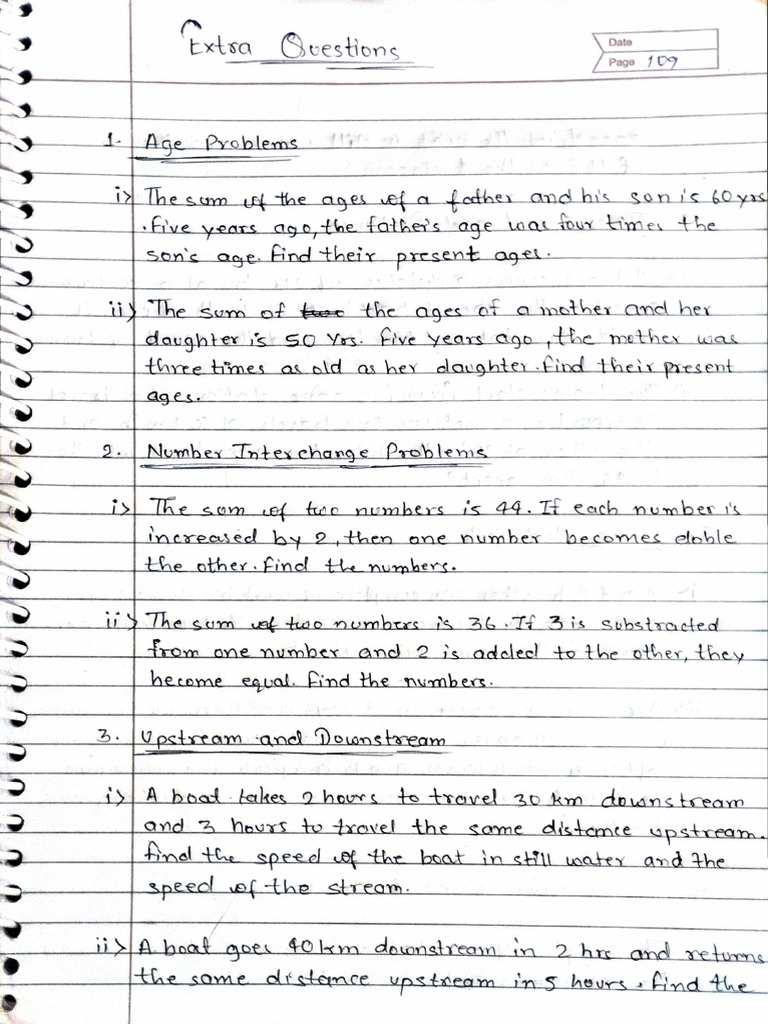 Extra Questions
Date
Page 109
1. Age Problems
i> The sum of the ages of a father and his son is 60 yrs
. Five years ago, the father's age was four times the
son's age. Find their present ages.
ii> The sum of two the ages of a mother and her
daughter is 50 Yrs. Five years ago, the mother was
three times as old as her daughter. Find their present
ages.
2. Number Interchange Problems
i> The sum of two numbers is 44. If each number is
increased by 2, then one number becomes doble
the other. Find the numbers.
ii> The sum of two numbers is 36. If 3 is substracted
from one number and 2 is added to the other, they
become equal. Find the numbers.
3. Upstream and Downstream
i> A boat takes 2 hours to travel 30 km downstream
and 3 hours to travel the same distance upstream.
Find the speed of the boat in still water and the
speed of the stream.
ii> A boat goes 40 km downstream in 2 hrs and returns
the same distance upstream in 5 hours. Find the